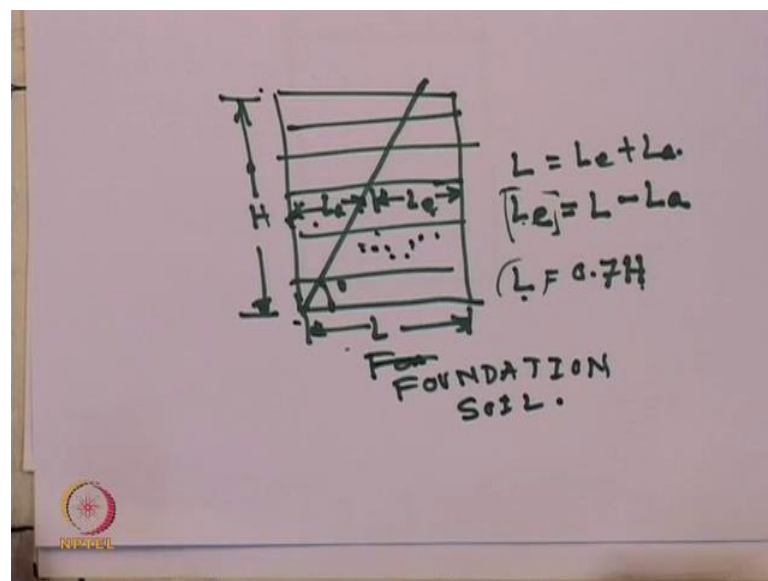 H
La
Le
L = Le + La.
[Le] = L - La
(L = 0.7H
θ
L
For
FOUNDATION
SOIL.
NPTEL